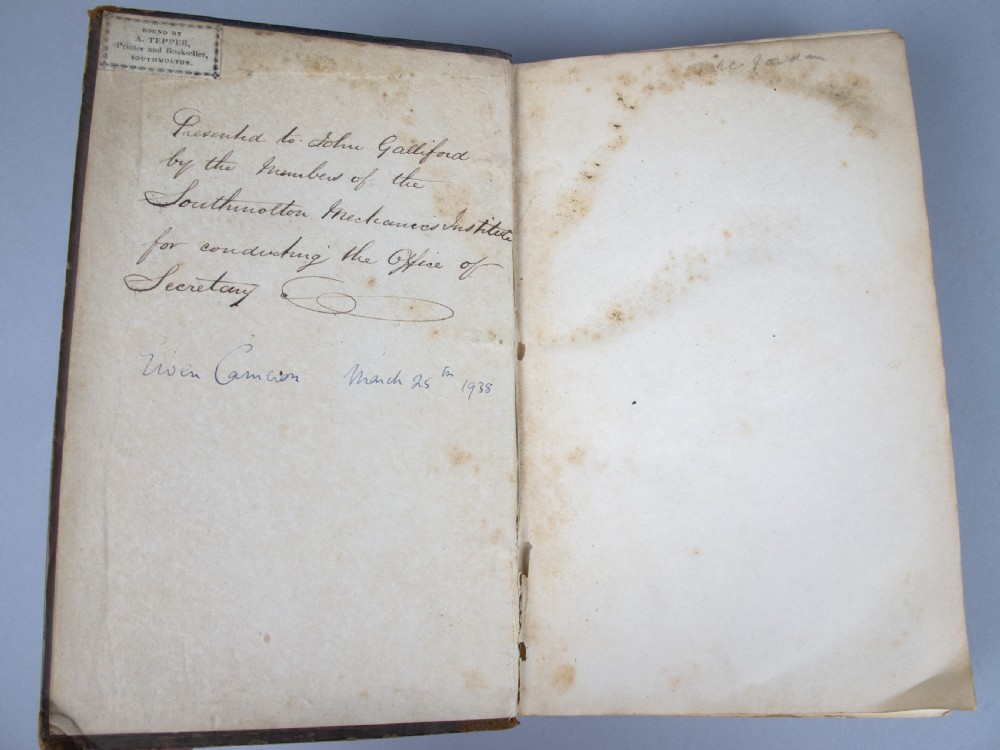 BOUND BY
A. TEPPER,
Printer and Bookseller,
SOUTHMOLTON.
Presented to John Galliford
by the Members of the
Southmolton Mechanics Institute
for conducting the Office of
Secretary
Cameron March 25th 1938